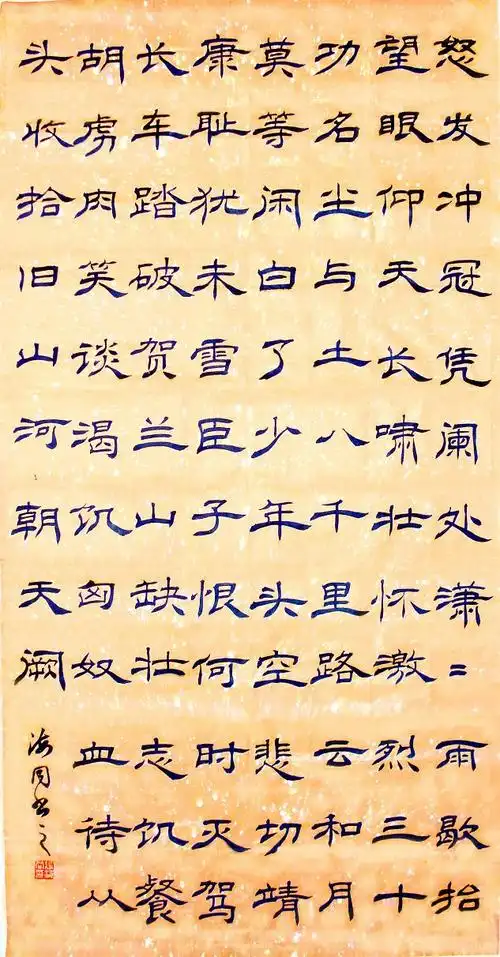 怒发冲冠凭阑处潇=雨歇抬
望眼仰天长啸壮怀激烈三十
功名尘与土八千里路云和月
莫等闲白了少年头空悲切靖
康耻犹未雪臣子恨何时灭驾
长车踏破贺兰山缺壮志饥餐
胡虏肉笑谈渴饥匈奴血待从
头收拾旧山河朝天阙